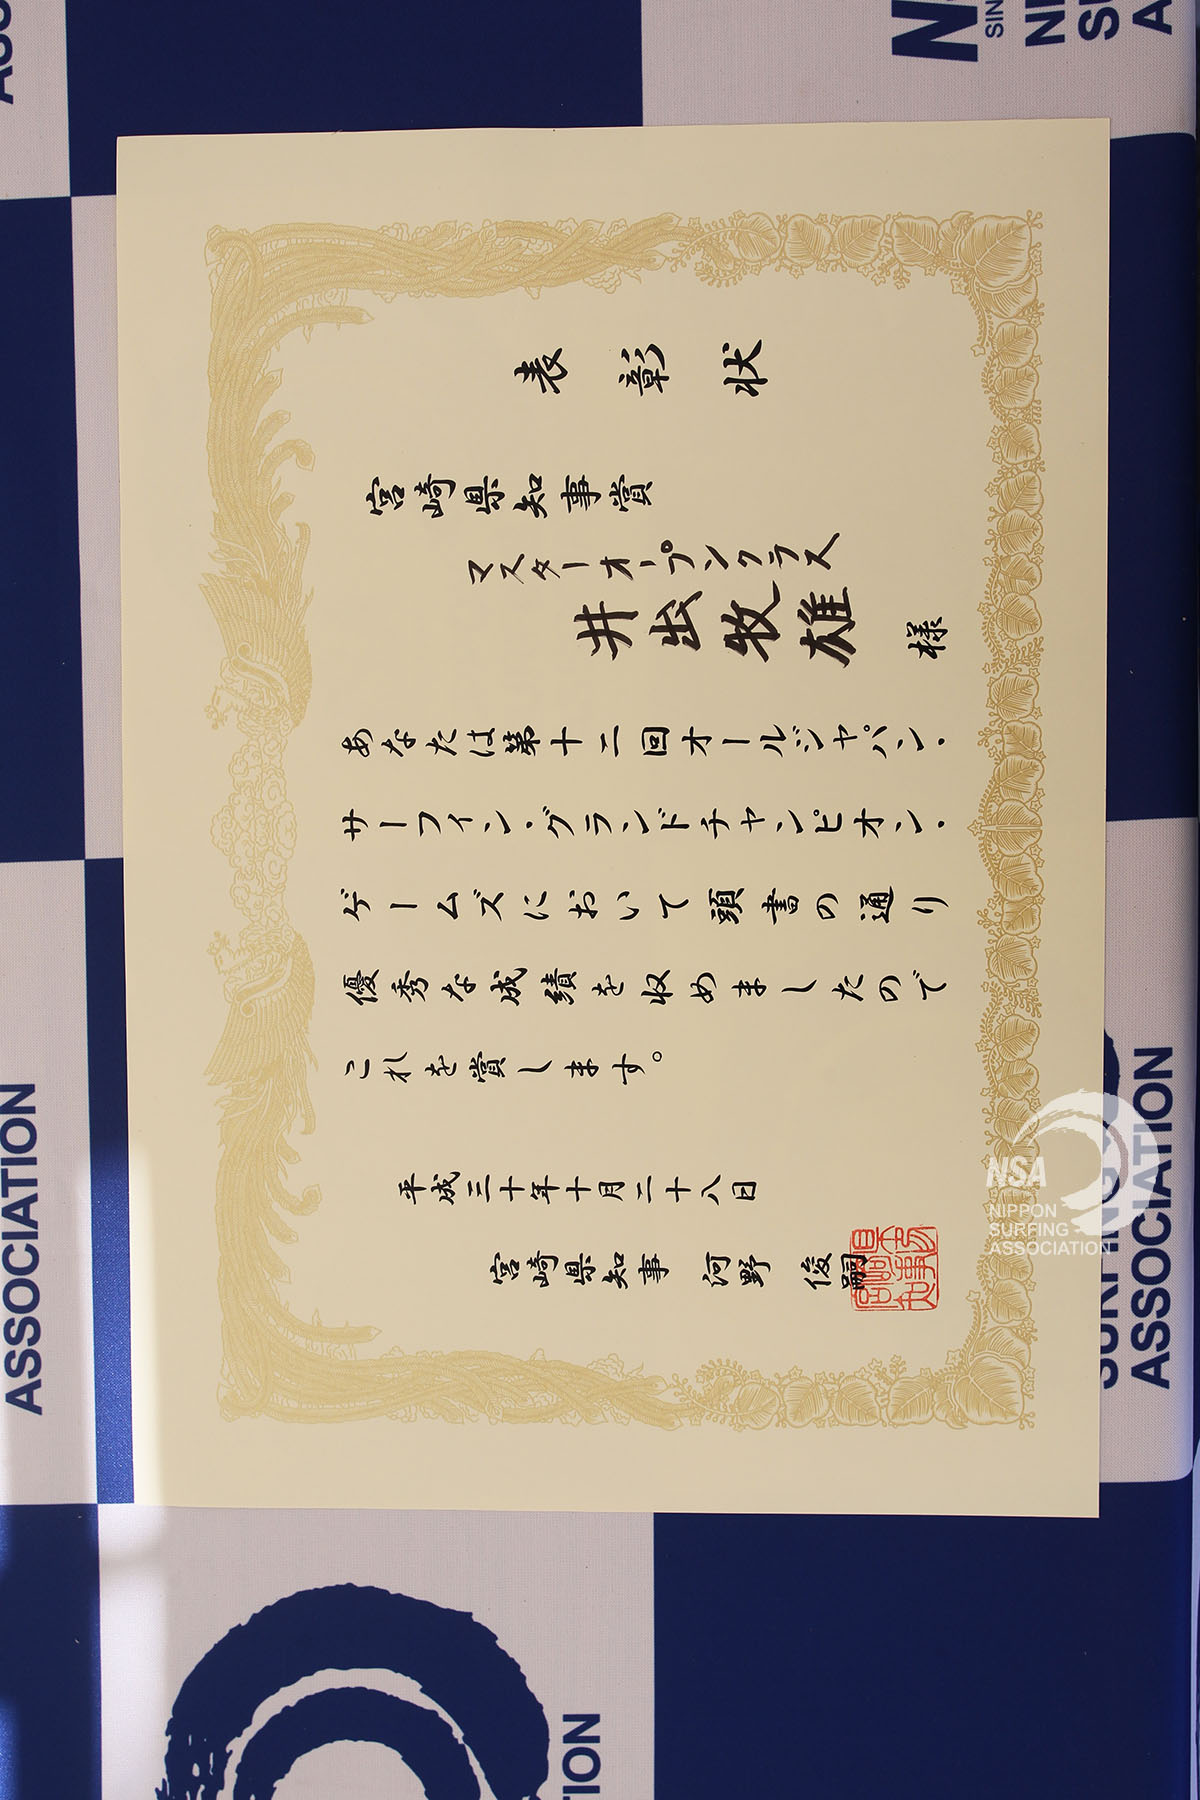 表彰状
宮崎県知事賞
マスターオープンクラス
井出牧雄 様
あなたは第十二回オールジャパン・
サーフィン・グランドチャンピオン・
ゲームズにおいて頭書の通り
優秀な成績を収めましたので
これを賞します。
平成三十年十月二十八日
宮崎県知事 河野 俊嗣
NSA
NIPPON
SURFING
ASSOCIATION
ASSOCIATION
ASSOCIATION